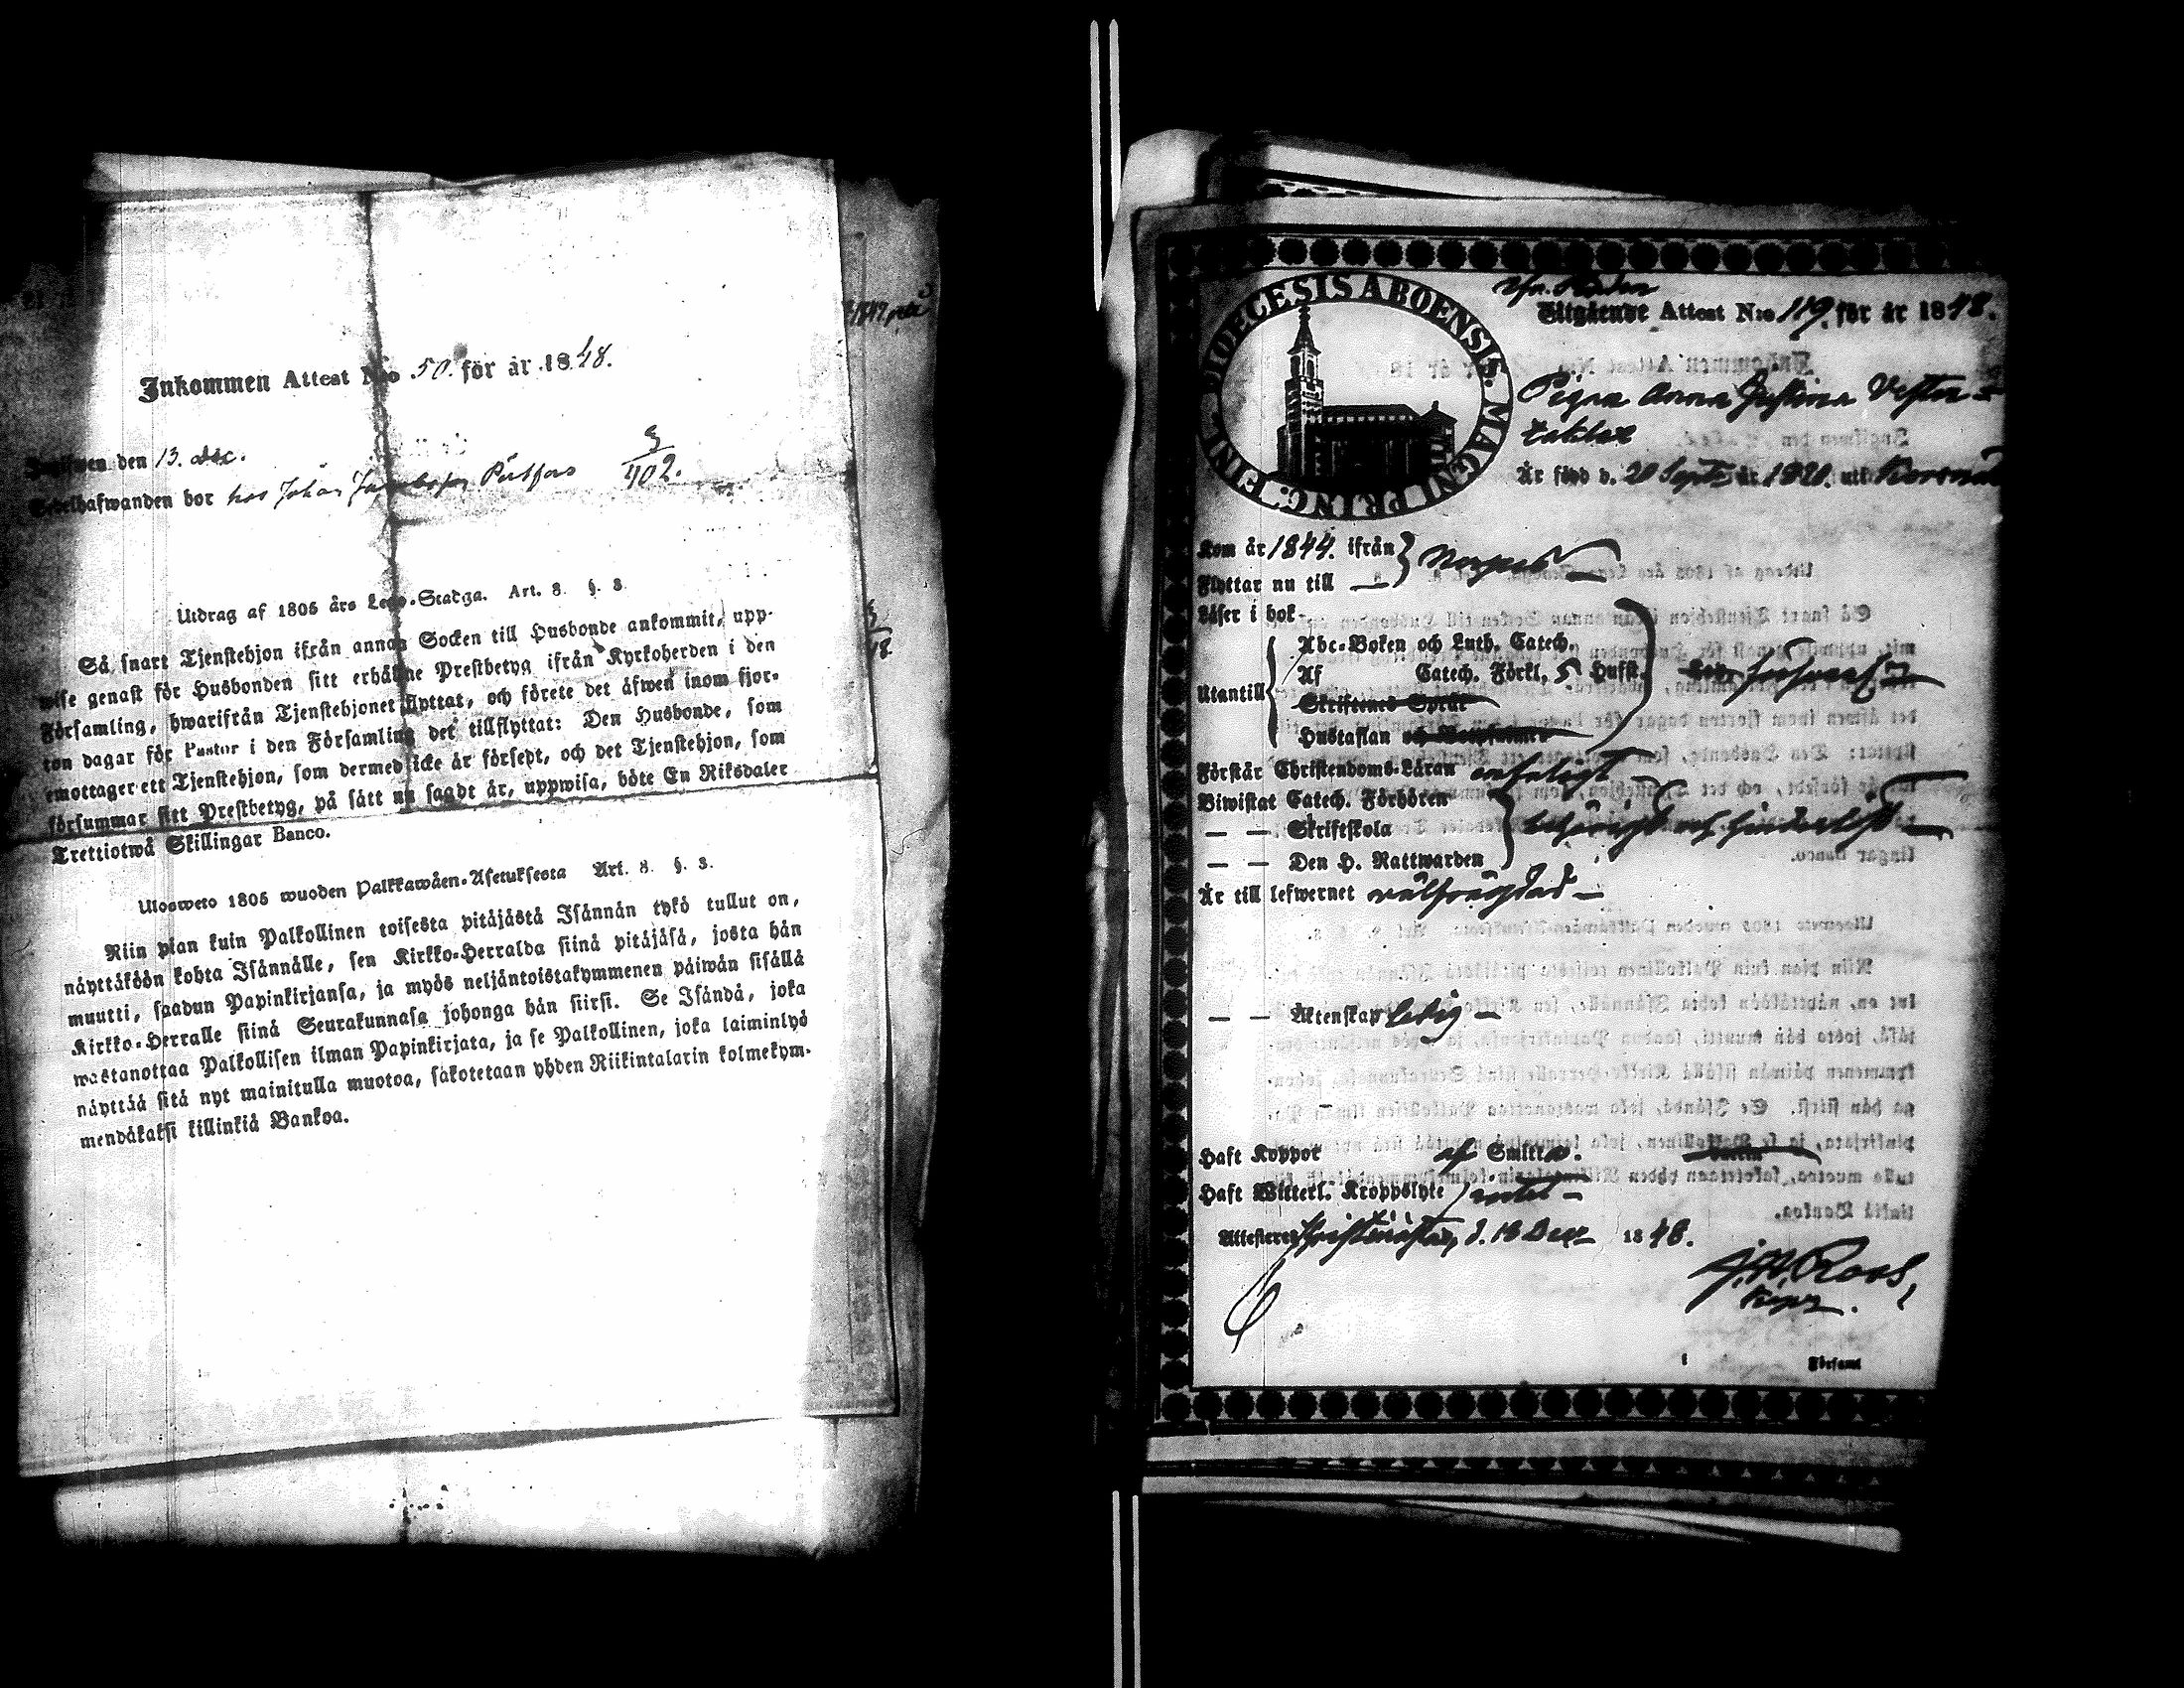 Inkommen Attest N:o 50. för år 1848.
Ingifwen den 13. dec.
Sedelhafwanden bor hos Johan Jacobsson
5
402.
Utdrag af 1805 års Lego-Stadga. Art. 8. §. 3.
Så snart Tjenstehjon ifrån annan Socken till Husbonde ankommit, upp-
wise genast för Husbonden sitt erhållne Prestbetyg ifrån Kyrkoherden i den
Församling, hwarifrån Tjenstehjonet flyttat, och förete det äfwen inom fjor-
ton dagar för Pastor i den Församling det tillflyttat: Den Husbonde, som
emottager ett Tjenstehjon, som dermed icke är försedt, och det Tjenstehjon, som
försummar sitt Prestbetyg, på sätt nu sagdt är, uppwisa, böte En Riksdaler
Trettiotwå Skillingar Banco.
Ulosweto 1805 wuoden Palkkawäen-Asetuksesta Art. 8. §. 3.
Niin pian kuin Palkollinen toisesta pitäjästä Isännän tykö tullut on,
näyttäköön kohta Isännälle, sen Kirkko-Herralda siinä pitäjäsä, josta hän
muutti, saadun Papinkirjansa, ja myös neljäntoistakymmenen päiwän sisällä
Kirkko-Herralle siinä Seurakunnasa johonga hän siirsi. Se Isändä, joka
wastanottaa Palkollisen ilman Papinkirjata, ja se Palkollinen, joka laiminlyö
näyttää sitä nyt mainitulla muotoa, sakotetaan yhden Riikintalarin kolmekym-
mendäkaksi killinkiä Bankoa.
FINL. DIOECESIS ABOENSIS. MAGNI PRINC.
Utgående Attest N:o 119. för år 1848.
Pigan Anna Justina Vester-
Är född d. 20 Sept. år 1820. uti Korsnäs
Kom år 1844. ifrån
Flyttar nu till
Läser i bok
Utantill
Abc-Boken och Luth. Catech.
Af Catech. Förkl. 5 Hufst.
Skriftenes Språk
Hustaflan och
Förstår Christendoms-Läran enfaligt
Biwistat Catech. Förhören
— — Skriftskola
— — Den H. Nattwarden
Är till lefwernet välfrägdad
— — Äktenskap ledig
Haft Koppor af Smitta.
Haft Witterl. Kroppslyte
Attesterer Christinestad, d. 10 Dec. 1848.
J. H. Roos,
Församl